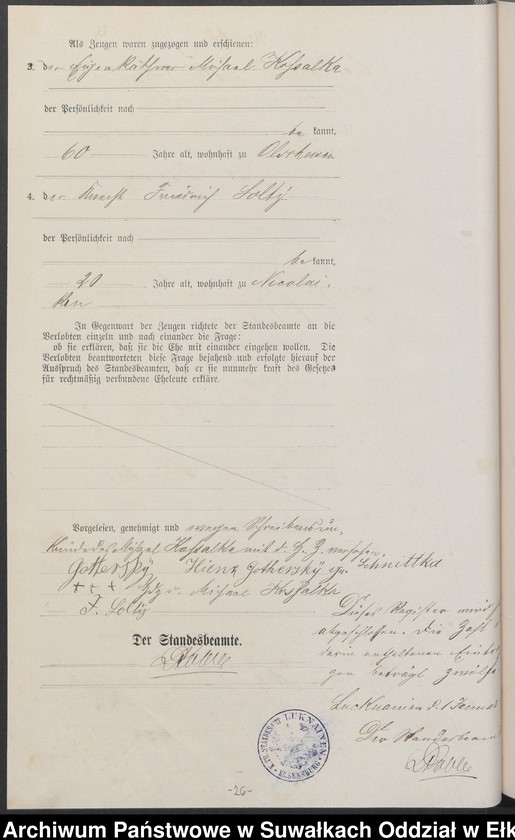 Als Zeugen waren zugezogen und erschienen:
3. der Eigenkäthner Michael Kossalka
der Persönlichkeit nach
be kannt,
60 Jahre alt, wohnhaft zu Olschewen
4. der Knecht Friedrich Solty
der Persönlichkeit nach
be kannt,
20 Jahre alt, wohnhaft zu Nicolai-
ken
In Gegenwart der Zeugen richtete der Standesbeamte an die
Verlobten einzeln und nach einander die Frage:
ob sie erklären, daß sie die Ehe mit einander eingehen wollen. Die
Verlobten beantworteten diese Frage bejahend und erfolgte hierauf der
Ausspruch des Standesbeamten, daß er sie nunmehr kraft des Gesetzes
für rechtmäßig verbundene Eheleute erkläre.
Vorgelesen, genehmigt und wegen Schreibensun-
kunde des Michael Kossalka mit d. H. Z. versehen.
Gottersky Gothersky geb. Schnittka
+++ Hdz. Michael Kossalka
F. Solty
Der Standesbeamte.
Dieses Register wird
abgeschlossen. Die Zahl
darin enthaltenen Eintra-
gen beträgt zwölf
Lucknainen d. 1
Der Standesbeamte
K. PR. STANDESAMT LUKNAINEN KR. SENSBURG
-26-
Archiwum Państwowe w Suwałkach Oddział w Ełk